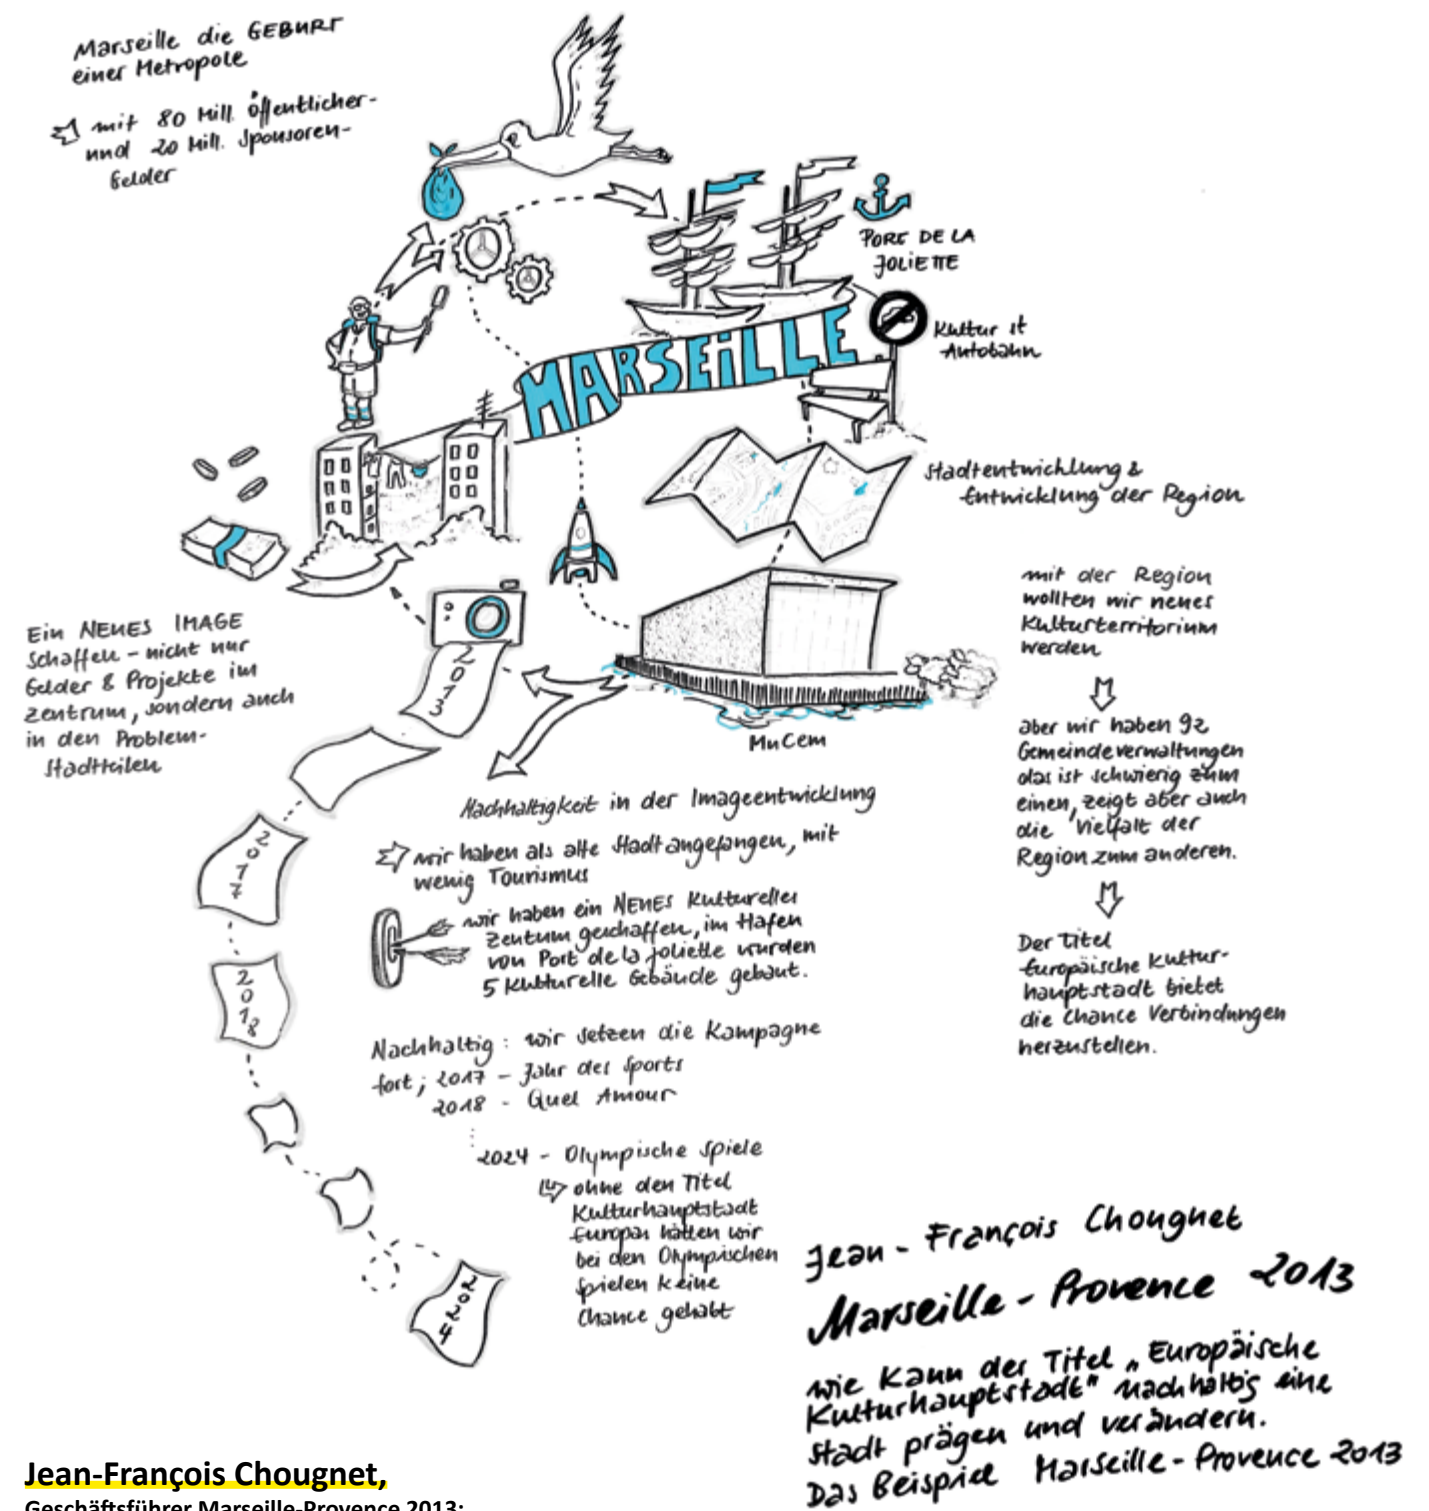 Marseille die GEBURT
einer Metropole
mit 80 Mill. öffentlicher-
und 20 Mill. Sponsoren-
Gelder
PORT DE LA
JOLIETTE
MARSEILLE
Kultur st
Autobahn
Stadtentwicklung &
Entwicklung der Region
mit der Region
wollten wir neues
Kulturterritorium
werden
aber wir haben 92
Gemeindeverwaltungen
das ist schwierig zum
einen, zeigt aber auch
die Vielfalt der
Region zum anderen.
Der Titel
Europäische Kultur-
hauptstadt bietet
die Chance Verbindungen
herzustellen.
Ein NEUES IMAGE
Schaffen - nicht nur
Gelder & Projekte im
Zentrum, sondern auch
in den Problem-
Stadtteilen
2013
MuCem
2017
2018
2024
Nachhaltigkeit in der Imageentwicklung
wir haben als alte Stadt angefangen, mit
wenig Tourismus
wir haben ein NEUES Kulturelles
Zentum geschaffen, im Hafen
von Port de la joliette wurden
5 Kulturelle Gebäude gebaut.
Nachhaltig: wir setzen die Kampagne
fort; 2017 - Jahr des Sports
2018 - Quel Amour
2024 - Olympische Spiele
ohne den Titel
Kulturhauptstadt
Europas hätten wir
bei den Olympischen
Spielen keine
Chance gehabt
Jean-François Chougnet
Marseille-Provence 2013
wie kann der Titel „Europäische
Kulturhauptstadt" nachhaltig eine
Stadt prägen und verändern.
Das Beispiel Marseille-Provence 2013
Jean-François Chougnet,
Geschäftsführer Marseille-Provence 2013: